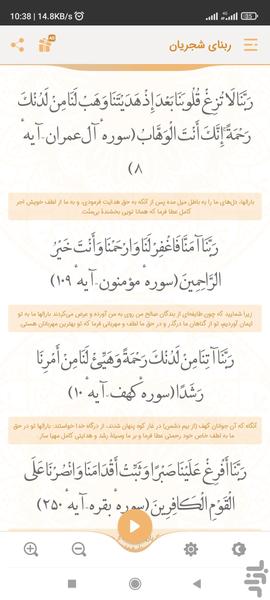 10:38 | 14.8KB/s
85
ربنای شجریان
40
رَبَّنَا لَا تُزِغْ قُلُوبَنَا بَعْدَ إِذْ هَدَيْتَنَا وَهَبْ لَنَا مِن لَدُنكَ
رَحْمَةً إِنَّكَ أَنتَ الْوَهَّابُ (سوره آل عمران - آیه
۸)
بارالها، دل‌های ما را به باطل میل مده پس از آنکه به حق هدایت فرمودی، و به ما از لطف خویش اجر
کامل عطا فرما که همانا تویی بخشندهٔ بی‌منّت.
رَبَّنَا آمَنَّا فَاغْفِرْ لَنَا وَارْحَمْنَا وَأَنتَ خَيْرُ
الرَّاحِمِينَ (سوره مؤمنون - آیه ۱۰۹)
زیرا شمایید که چون طایفه‌ای از بندگان صالح من روی به من آورده و عرض می‌کردند بارالها ما به تو
ایمان آوردیم، تو از گناهان ما درگذر و در حق ما لطف و مهربانی فرما که تو بهترین مهربانان هستی.
رَبَّنَا آتِنَا مِن لَدُنكَ رَحْمَةً وَهَيِّئْ لَنَا مِنْ أَمْرِنَا
رَشَدًا (سوره کهف - آیه ۱۰)
آنگاه که آن جوانان کهف (از بیم دشمن) در غار کوه پنهان شدند، از درگاه خدا خواستند: بارالها تو در حق
ما به لطف خاص خود رحمتی عطا فرما و بر ما وسیلهٔ رشد و هدایتی کامل مهیا ساز.
رَبَّنَا أَفْرِغْ عَلَيْنَا صَبْرًا وَثَبِّتْ أَقْدَامَنَا وَانصُرْنَا عَلَى
الْقَوْمِ الْكَافِرِينَ (سوره بقره - آیه ۲۵۰)
بازار